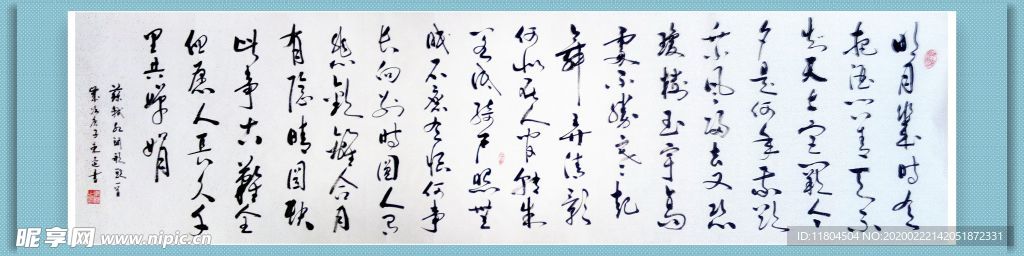 明月幾時有
把酒问青天不
知天上宫闕今
夕是何年我欲
乘風归去又恐
瓊樓玉宇高
處不勝寒起
舞弄清影
何似在人间轉朱
阁低绮户照無
眠不應有恨何事
长向别時圆人有
悲歡離合月
有陰晴圆缺
此事古難全
但愿人長久千
里共婵娟
蘇軾水調歌头一首
歲次庚子
昵享网 www.nipic.cn
ID:11804504 NO:20200222142051872331